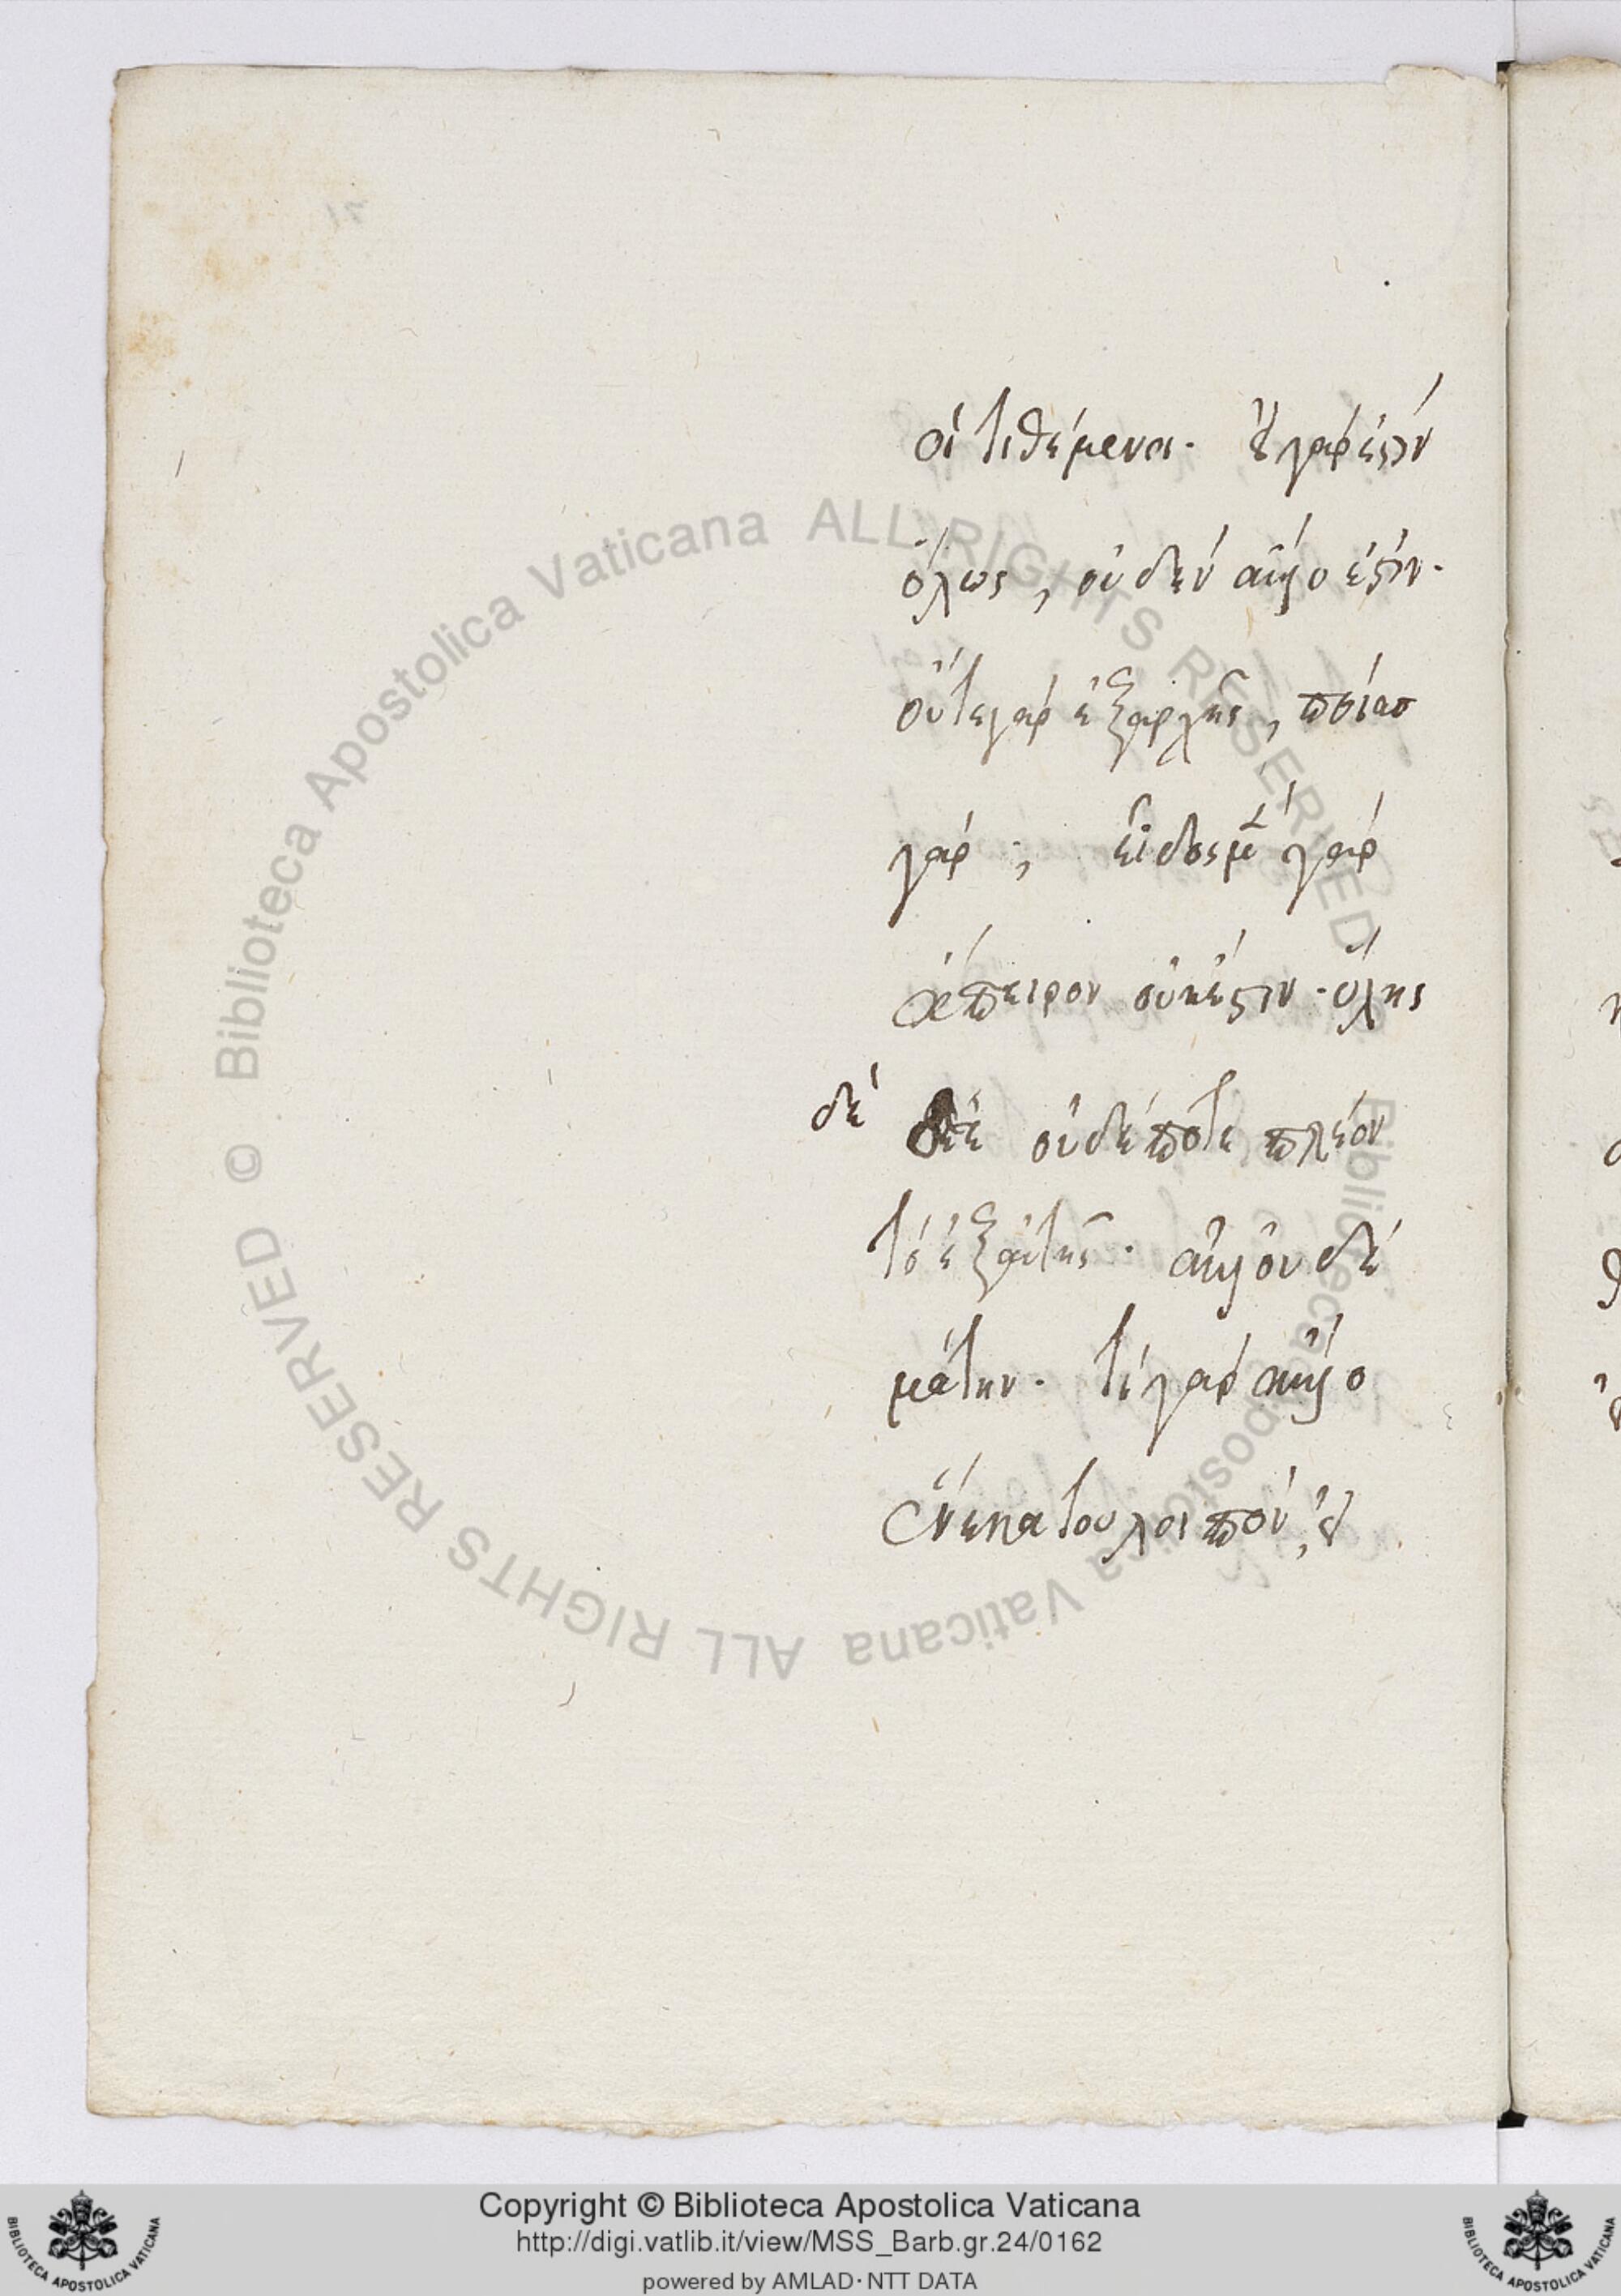 οἱ τιθέμενοι. οὐ γάρ ἐστιν
ὅλως, οὐδὲν αὐτὸ ἐστίν.
οὔτε γὰρ ἐξαρχῆς, ποίας
γάρ; εἶδος μὲν γὰρ
ἄπειρον οὐκ ἔστιν. ὕλης
δὲ
οὐδέποτε πλέον
τὸ ἐξ αὐτῆς.
μάτην. τί γὰρ
ἕνεκα τοῦ λοιποῦ,
© Biblioteca Apostolica Vaticana ALL RIGHTS RESERVED
© Biblioteca Apostolica Vaticana ALL RIGHTS RESERVED
Copyright © Biblioteca Apostolica Vaticana
http://digi.vatlib.it/view/MSS_Barb.gr.24/0162
powered by AMLAD·NTT DATA
BIBLIOTECA APOSTOLICA VATICANA
BIBLIOTECA APOSTOLICA VATICANA